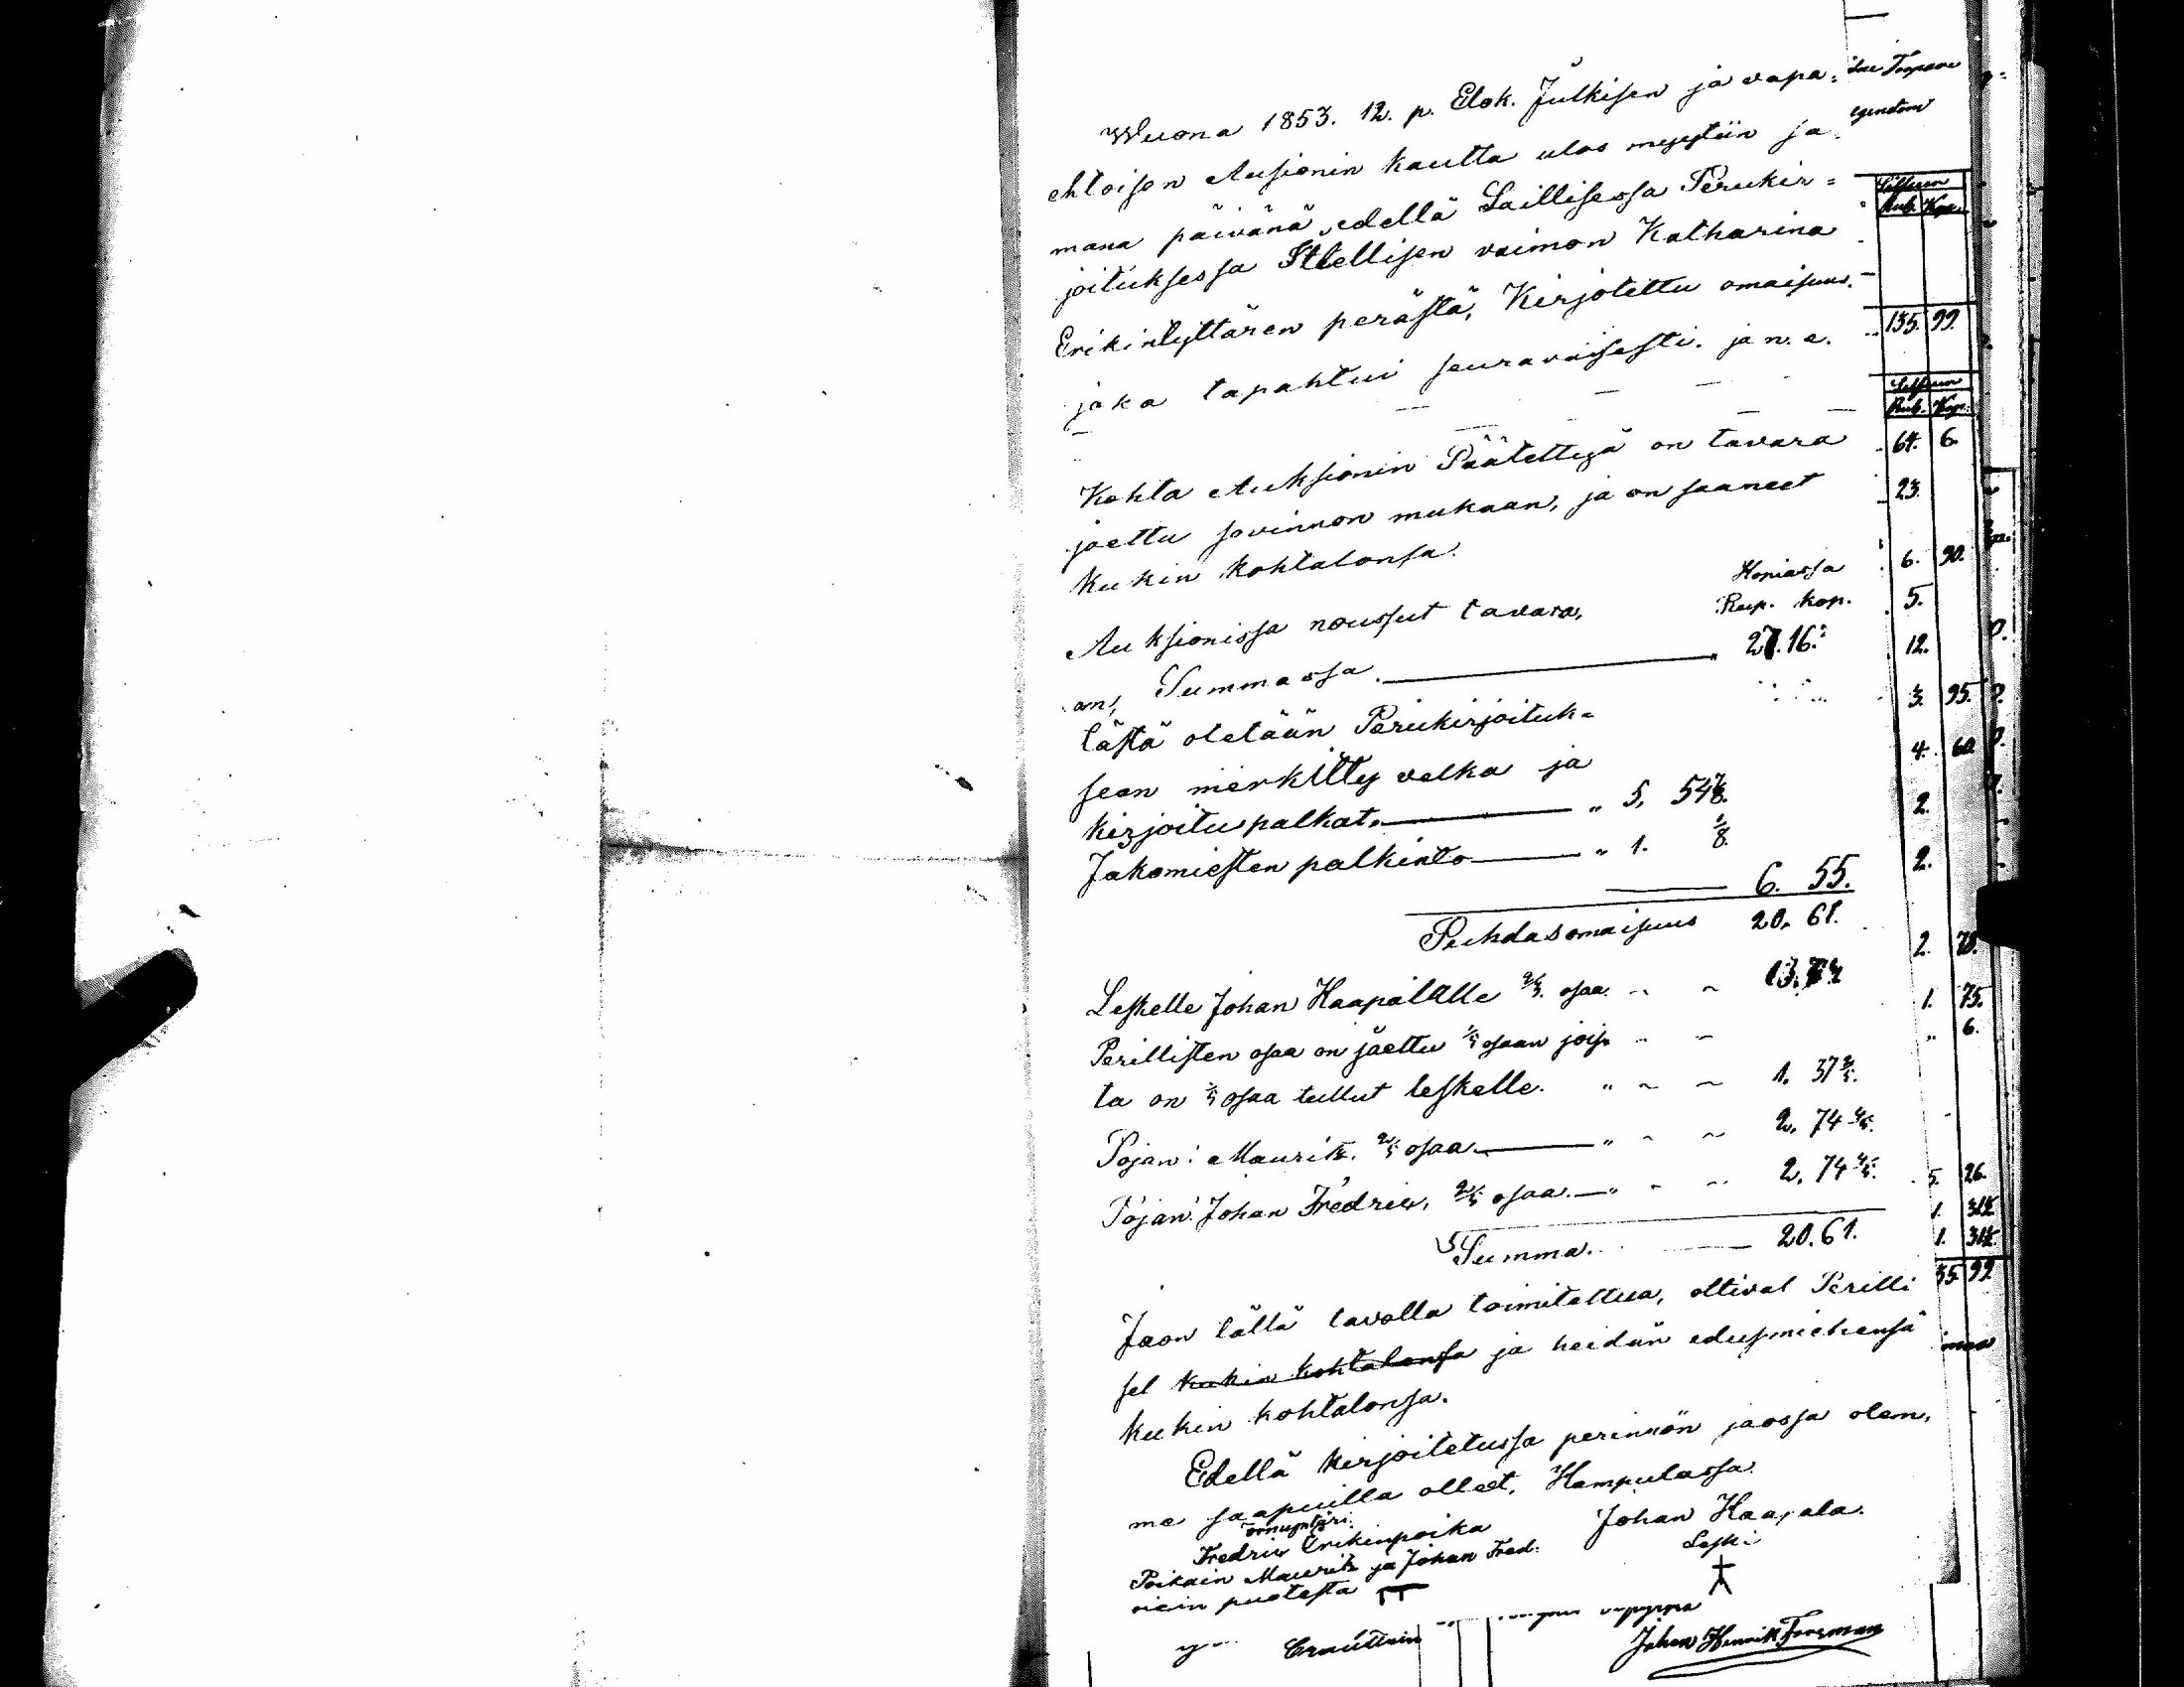 Wuona 1853. 12. p. Elok. Julkisen ja vapa=
ehtoisen Ausionin kautta ulos myytiin sa
mana päivänä, edellä Laillisessa Perukir=
joituksessa Itsellisen vaimon Katharina
Erikintyttären perästä, Kirjotettu omaisuus.
joka tapahtui seuravaisesti. ja n. e.
Kohta Auksionin Päätettyä on tavara
jaettu sovinnon mukaan, ja on saaneet
kukin kohtalonsa.
Hopiassa
Auksionissa noussut tavara, Rup. kop.
an, Summassa. 27. 16.
tästä otetään Perukirjoituk=
seen merkitty velka ja
kirjoitus palkat. " 5. 54 7/8.
Jakomiesten palkinto " 1. 1/8.
6. 55.
Puhdas omaisuus 20. 61.
Leskelle Johan Haapalalle 2/3. osaa 13. 74
Perillisten osaa on jaettu 1/5 osaan jois
ta on 1/5 osaa tullut leskelle. " 1. 37 2/5.
Pojan: Maurits. 2/5 osaa " 2. 74 4/5.
Pojan: Johan Fredric, 2/5 osaa. " 2. 74 4/5.
Summa. 20. 61.
Jaon tällä tavalla toimitettua, ottivat Perilli
set kukin kohtalonsa ja heidän edusmiehensä
kukin kohtalonsa.
Edellä kirjoitetussa perinnön jaossa olem,
me saapuilla olleet, Hampulassa.
Fredric Erikinpoika Johan Haapala.
Poikain Maurits ja Johan Fred: Leski
ricin puolesta
Johan Henrik Forsman
egendom
Silfwer
Rub. Kop.
135. 99.
Silfwer
Rub. Kop.
64. 6.
23.
6. 90.
5.
12.
3. 95.
4. 60.
2.
2.
2. 70.
1. 75.
" 6.
5. 26.
1. 31 1/2
1. 31 1/2
35. 99.